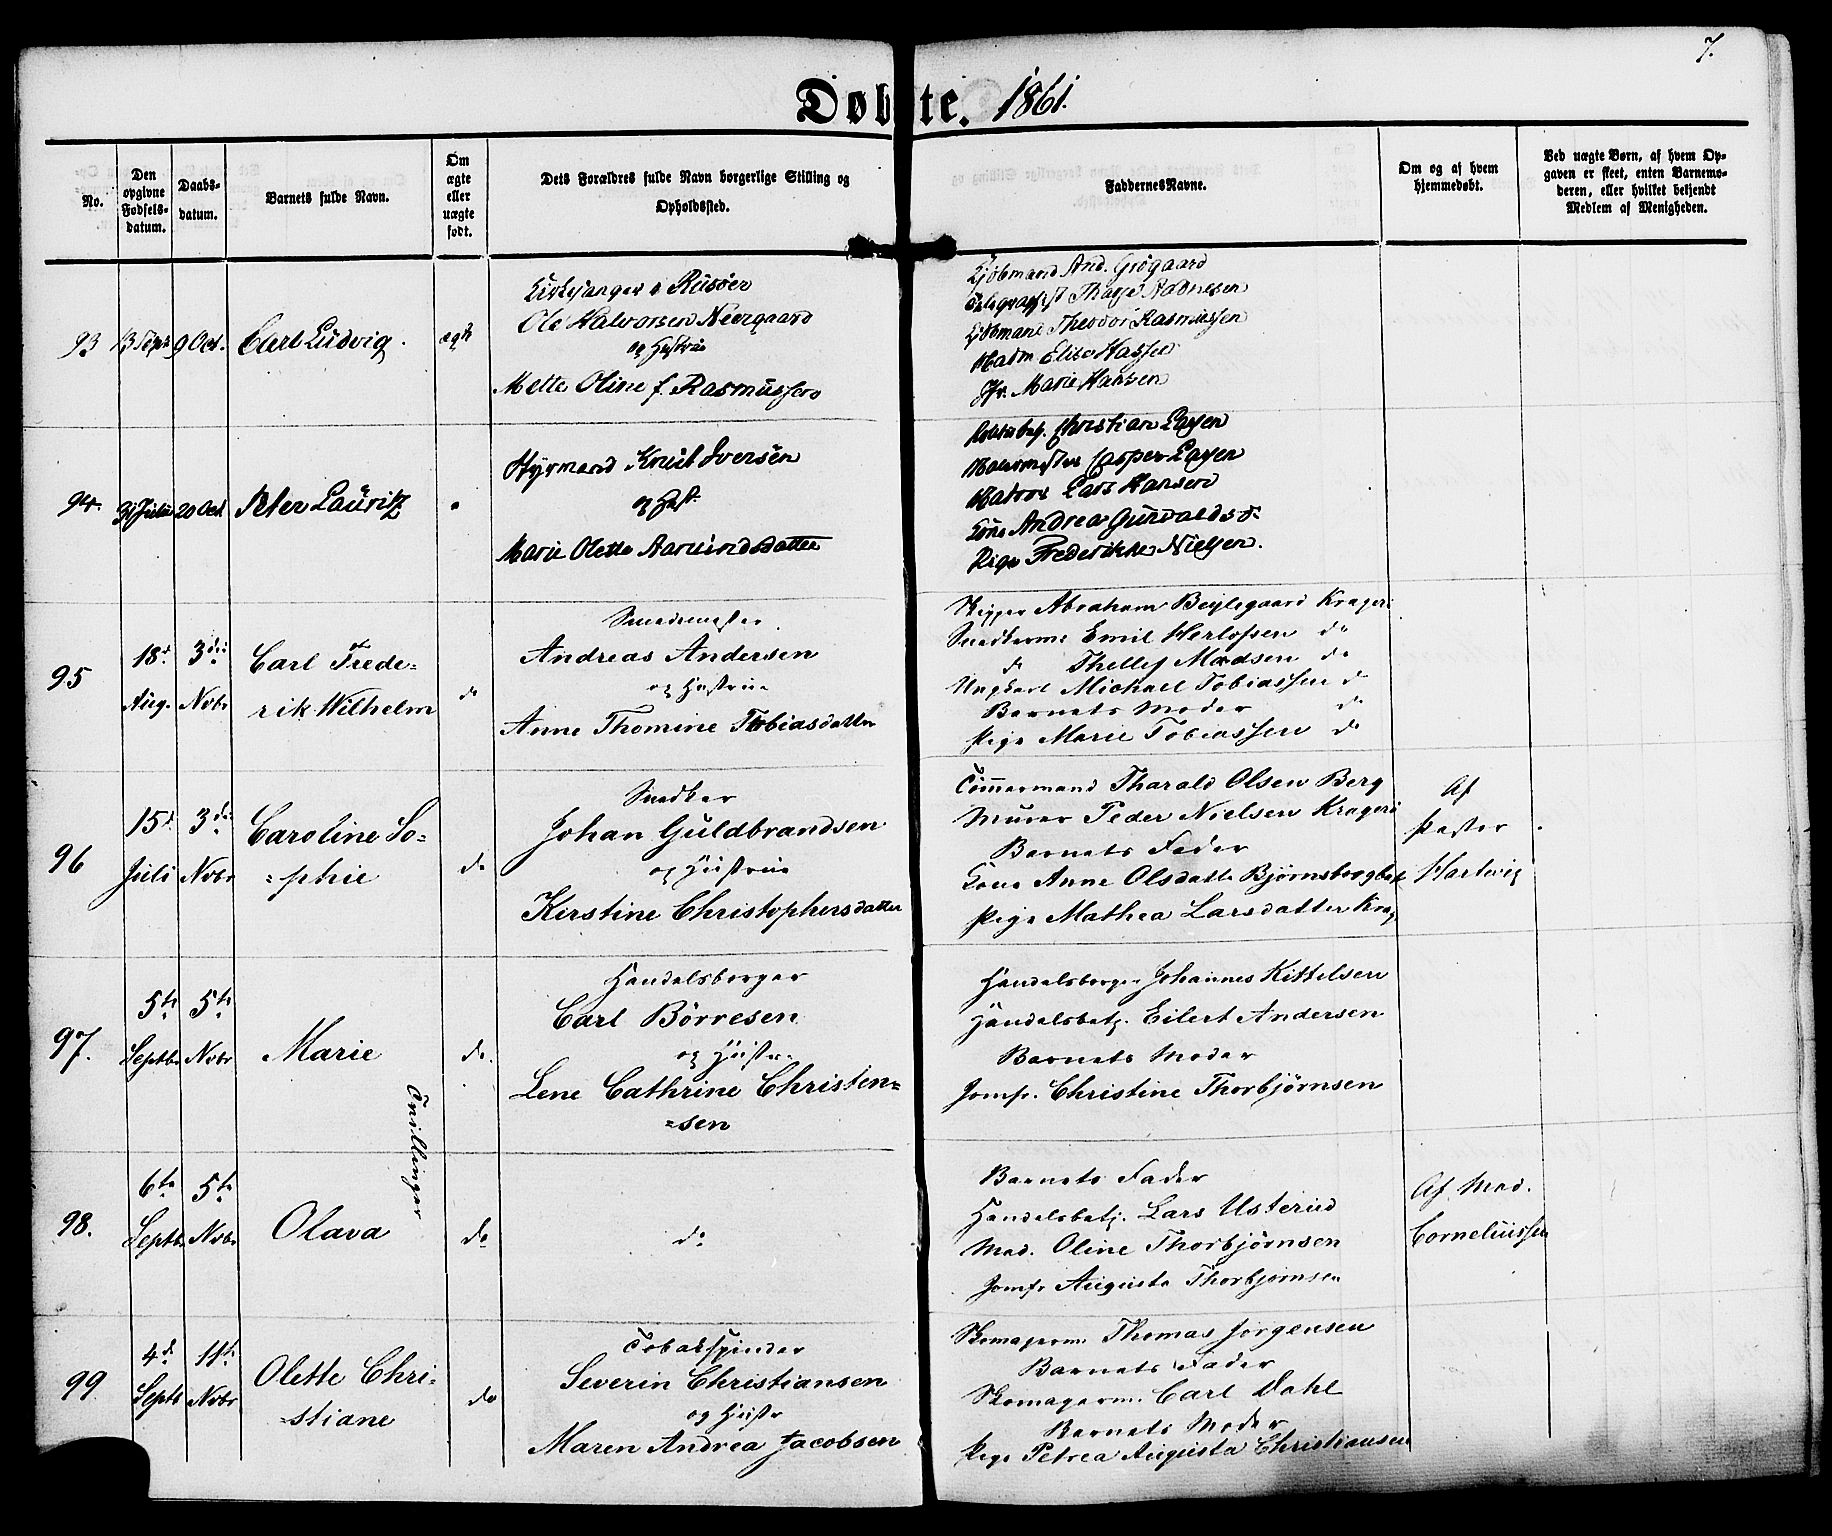 7.
Døbte. 1861.
No.
Den opgivne Fødsels-datum.
Daabs-datum.
Barnets fulde Navn.
Om ægte eller uægte født.
Dets Forældres fulde Navn borgerlige Stilling og Opholdssted.
FaddernesNavne.
Om og af hvem hjemmedøbt.
Ved uægte Børn, af hvem Op-gaven er skeet, enten Barnemo-deren, eller hvilket bekjendt Medlem af Menigheden.
93
13 Sept
9 Oct.
Carl Ludvig.
ægte
Kirkesanger i Risøer
Ole Halvorsen Neergaard
og Hustrue
Mette Oline f. Rasmussen
Kjøbmand And. Grøgaard
Telegraphist Tharje Aabnesen
Kjøbmand Theodor Rasmussen
Madm Elise Hassel
Jfr. Marie Hansen
94.
31 Julii
20 Oct.
Peter Lauritz
Styrmand Knut Iversen
og Hust.
Marie Olette Aamundsdatter
Christian Layen
Malermester Casper Layen
Matros Lars Hansen
Kone Andrea Gunvaldsd.
Pige Frederikke Nielsen.
95
18de Aug.
3die Novbr
Carl Frede-
rik Wilhelm
do
Smedemester
Andreas Andersen
og Hustrue
Anne Thomine Tobiasdatter
Skipper Abraham Beylegaard Kragerö
Snedkerm. Emil Herlofsen do
do Thellef Madsen do
Ungkarl Michael Tobiassen do
Barnets Moder do
Pige Marie Tobiassen do
96
15de Juli
3die Novbr
Caroline So-
=phie
do
Snedker
Johan Guldbrandsen
og Hustrue
Kerstine Christophersdatter
Tömmermand Tharald Olsen Berg
Murer Peder Nielsen Kragerö
Barnets Fader
Kone Anne Olsdatter
Pige Mathea Larsdatter Krag
Af
Pastor
Hartwig
97.
5te Septbr
5te Novbr
Marie
do.
Handelsborger
Carl Börresen
og Hustr.
Lene Cathrine Christen=
=sen
Handelsborger Johannes Kittelsen
Handelsbetj. Eilert Andersen
Barnets Moder
Jomfr. Christine Thorbjörnsen
Tvillinger
98.
6te Septbr
5te Novbr
Olava
do
do
Barnets Fader
Handelsbetj. Lars Usterud
Mad. Oline Thorbjörnsen
Jomfr Augusta Thorbjörnsen
Af Mad.
Corneliussen
99
4de Septb
11te Novbr
Olette Chri-
=stiane
do
Tobakspinder
Severin Christiansen
og Hustr
Maren Andrea Jacobsen
Skomagerm. Thomas Jörgensen
Barnets Fader
Skomagerm. Carl Dahl
Barnets Moder
Pige Petrea Augusta Christiansen